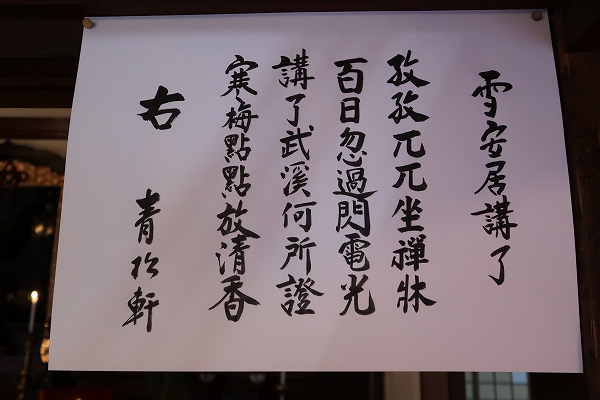 雪安居講了
孜孜兀兀坐禪牀
百日忽過閃電光
講了武溪何所證
寒梅點點放清香
右　青松軒